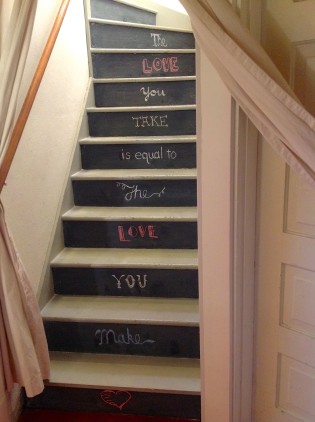 The
LOVE
You
TAKE
is equal to
The
LOVE
YOU
Make